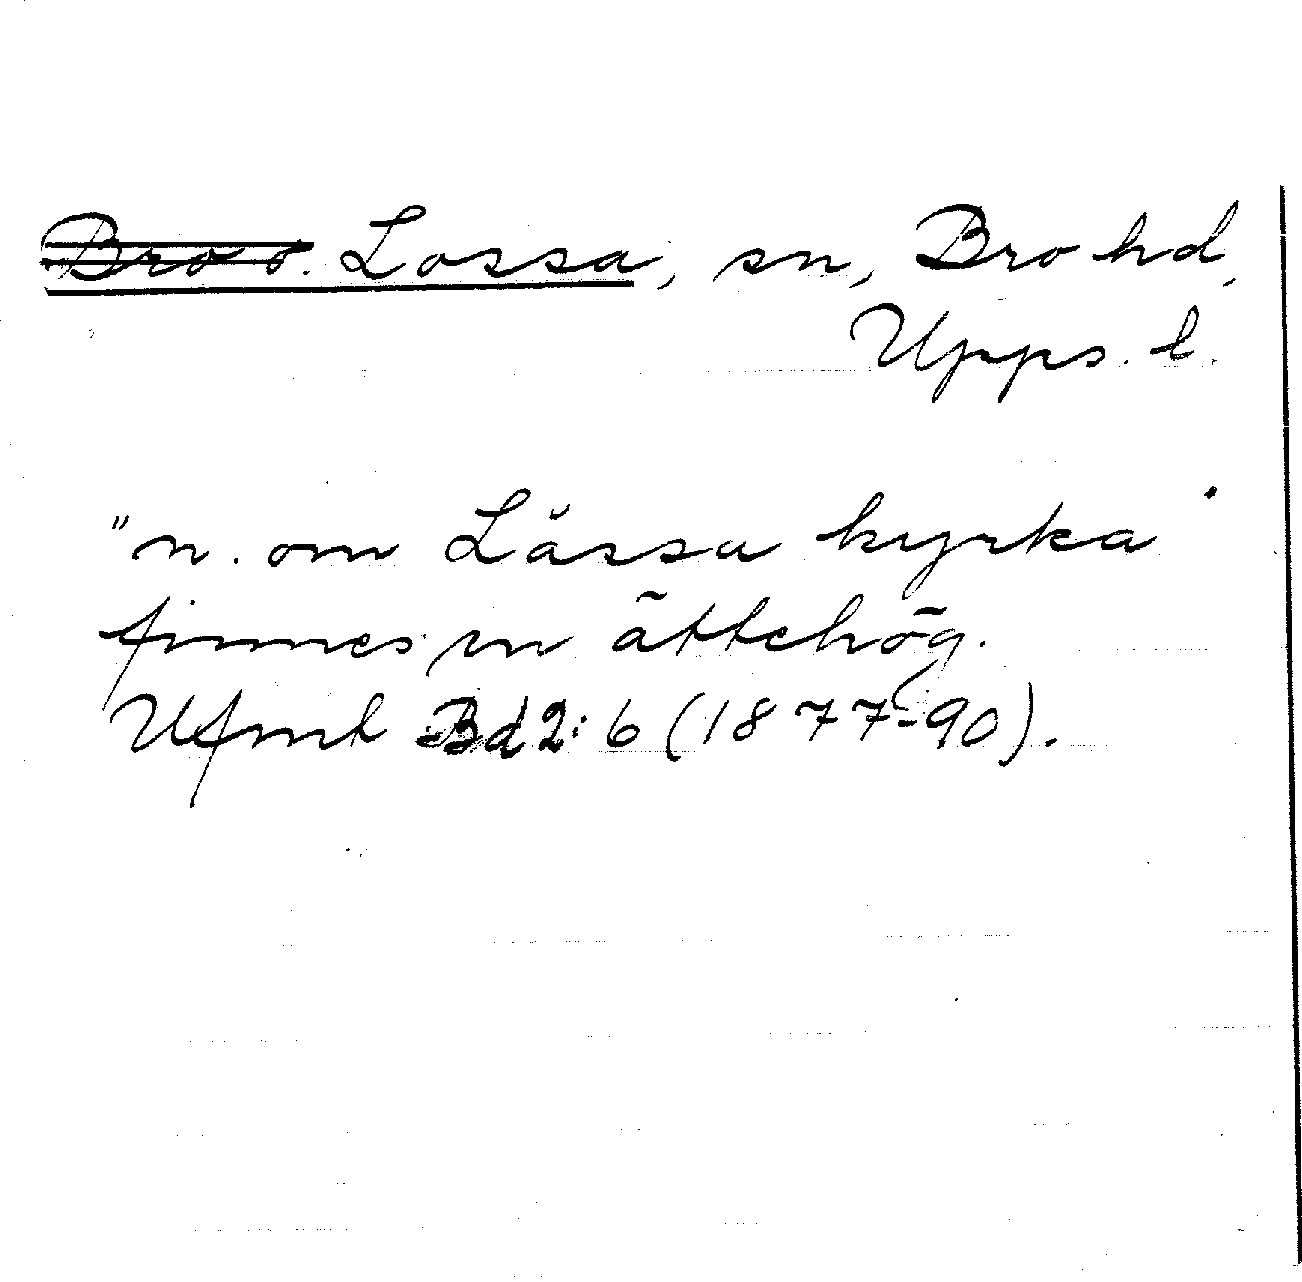 Bro o. Lossa, sn, Bro hd,
Upps. l.
"n. om Låssa kyrka
finnes en ättehög.
Ufmt Bd 2: 6 (1877-90).